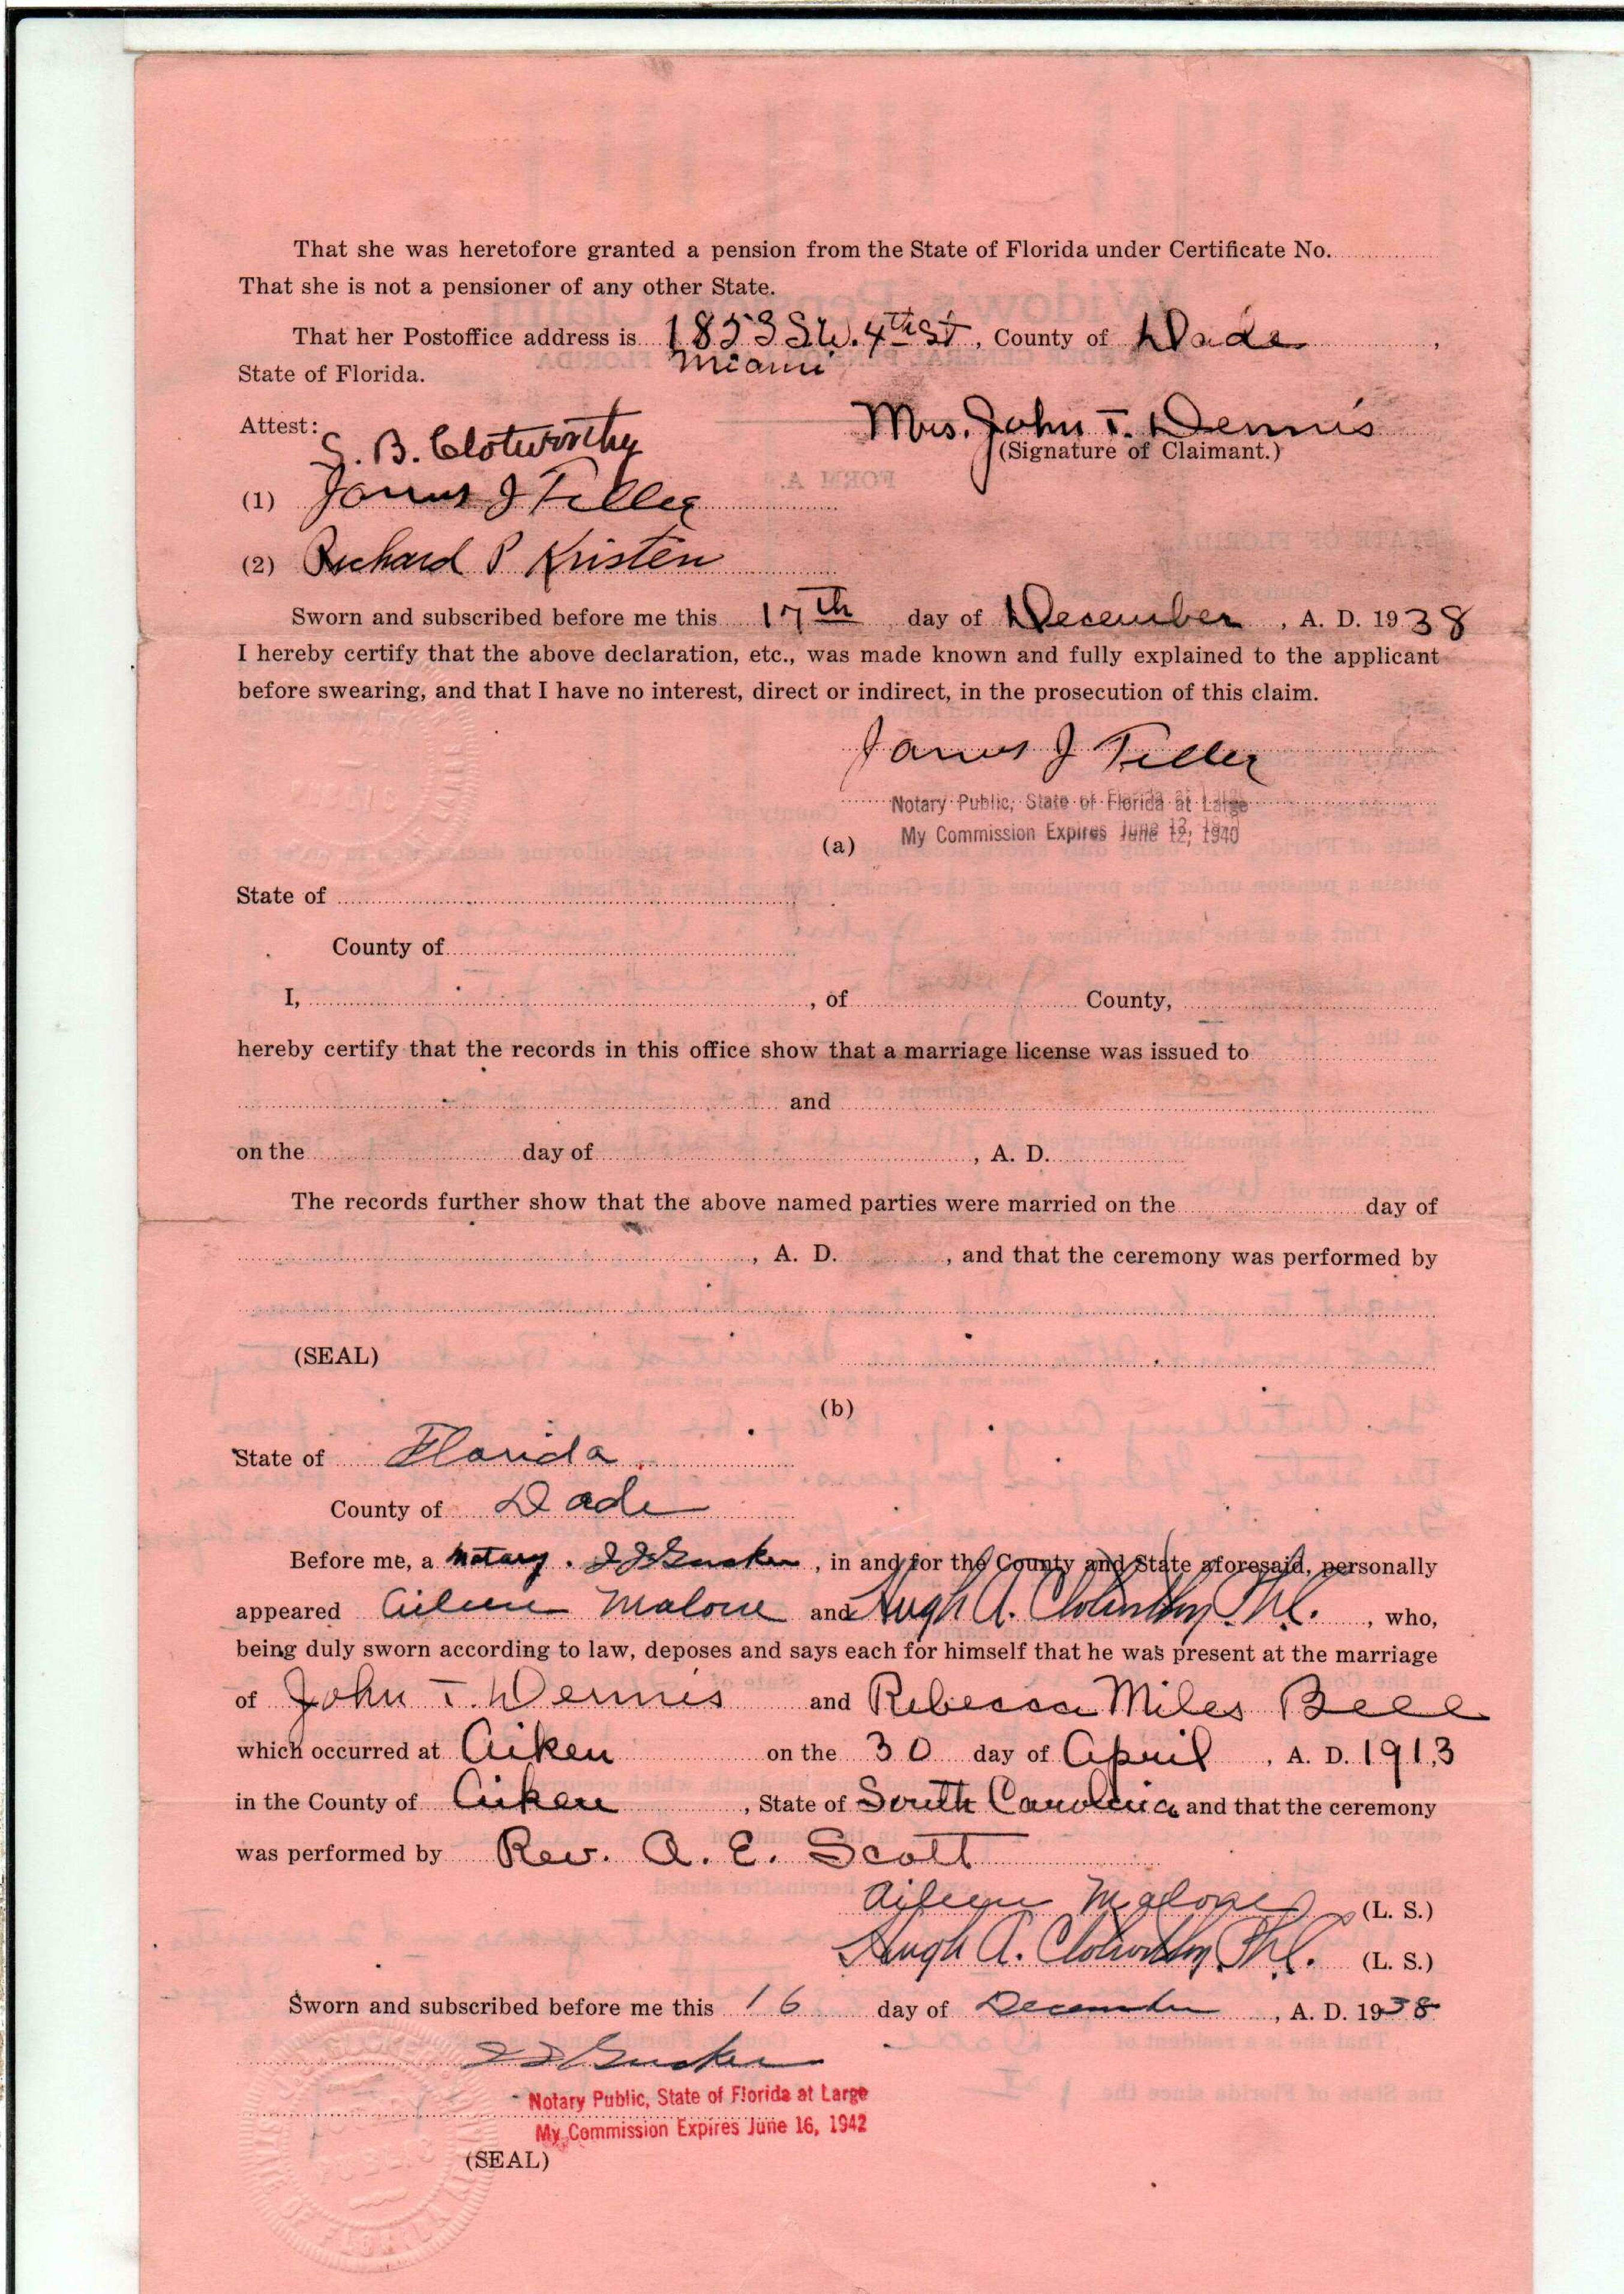 That she was heretofore granted a pension from the State of Florida under Certificate No.
That she is not a pensioner of any other State.
That her Postoffice address is 1853 S.W. 4th St, County of Dade,
Miami
State of Florida.
Attest: S. B. Clotworthy
Mrs. John T. Dennis
(Signature of Claimant.)
(1) James J Filler
(2) Richard P Kristen
Sworn and subscribed before me this 17th day of December, A. D. 1938
I hereby certify that the above declaration, etc., was made known and fully explained to the applicant
before swearing, and that I have no interest, direct or indirect, in the prosecution of this claim.
James J Filler
Notary Public, State of Florida at Large
My Commission Expires June 12, 1940
(a)
State of
County of
I, , of County,
hereby certify that the records in this office show that a marriage license was issued to
and
on the day of , A. D.
The records further show that the above named parties were married on the day of
, A. D. , and that the ceremony was performed by
(SEAL)
(b)
State of Florida
County of Dade
Before me, a notary. , in and for the County and State aforesaid, personally
appeared Aileen Malone and Hugh A. Clotworthy , who,
being duly sworn according to law, deposes and says each for himself that he was present at the marriage
of John T. Dennis and Rebecca Miles Bell
which occurred at Aiken on the 30 day of April, A. D. 1913
in the County of Aiken, State of South Carolina and that the ceremony
was performed by Rev. A. E. Scott
Aileen Malone (L. S.)
Hugh A. Clotworthy (L. S.)
Sworn and subscribed before me this 16 day of December, A. D. 1938
Notary Public, State of Florida at Large
My Commission Expires June 16, 1942
(SEAL)